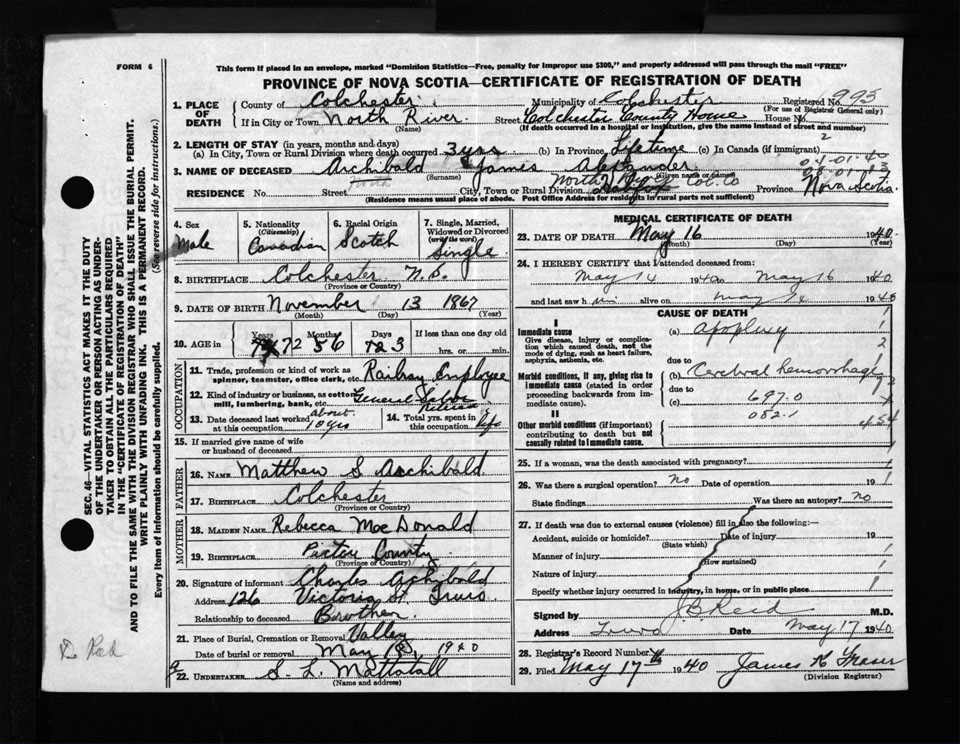 FORM 6
This form if placed in an envelope, marked "Dominion Statistics—Free, penalty for improper use $300," and properly addressed will pass through the mail "FREE"
PROVINCE OF NOVA SCOTIA—CERTIFICATE OF REGISTRATION OF DEATH
1. PLACE OF DEATH
County of Colchester Municipality of Colchester Registered No. 993
(For use of Registrar General only)
If in City or Town North River Street Colchester County Home House No.
(Name) (If death occurred in a hospital or institution, give the name instead of street and number)
2. LENGTH OF STAY (in years, months and days)
(a) In City, Town or Rural Division where death occurred 3 yrs (b) In Province Lifetime (c) In Canada (if immigrant)
3. NAME OF DECEASED Archibald James Alexander
(Surname) (Given or names)
RESIDENCE No. Street City, Town or Rural Division North Col. Co Province Nova Scotia
(Residence means usual place of abode. Post Office Address for residents in rural parts not sufficient)
4. Sex Male
5. Nationality (Citizenship) Canadian
6. Racial Origin Scotch
7. Single, Married, Widowed or Divorced (write the word) Single
8. BIRTHPLACE Colchester N.S.
(Province or Country)
9. DATE OF BIRTH November 13 1867
(Month) (Day) (Year)
10. AGE in Years 72 Months 6 Days 3 If less than one day old hrs. or min.
OCCUPATION
11. Trade, profession or kind of work as spinner, teamster, office clerk, etc. Railway Employee
12. Kind of industry or business, as cotton mill, lumbering, bank, etc. General Labor
retired
13. Date deceased last worked at this occupation about 10 yrs
14. Total yrs. spent in this occupation life
15. If married give name of wife or husband of deceased
FATHER
16. NAME Matthew S Archibald
17. BIRTHPLACE Colchester
(Province or Country)
MOTHER
18. MAIDEN NAME Rebecca MacDonald
19. BIRTHPLACE Pictou County
(Province or Country)
20. Signature of informant Charles Archibald
Address 126 Victoria St. Truro
Relationship to deceased Brother
21. Place of Burial, Cremation or Removal Valley
Date of burial or removal May 1940
22. UNDERTAKER S. L. Mattatall
(Name and address)
MEDICAL CERTIFICATE OF DEATH
23. DATE OF DEATH May 16 1940
(Month) (Day) (Year)
24. I HEREBY CERTIFY that I attended deceased from:
May 14 1940 to May 16 1940
and last saw him alive on May 1940
CAUSE OF DEATH
I
Immediate cause
Give disease, injury or complication which caused death, not the mode of dying, such as heart failure, asphyxia, asthenia, etc.
(a) apoplexy
due to
Morbid conditions, if any, giving rise to immediate cause (stated in order proceeding backwards from immediate cause).
(b) Cerebral hemorrhage
due to
(c) 697.0
082.1
II
Other morbid conditions (if important) contributing to death but not causally related to immediate cause.
25. If a woman, was the death associated with pregnancy?
26. Was there a surgical operation? no Date of operation 19
State findings Was there an autopsy? no
27. If death was due to external causes (violence) fill in also the following:—
Accident, suicide or homicide? Date of injury 19
(State which)
Manner of injury
(How sustained)
Nature of injury
Specify whether injury occurred in industry, in home, or in public place
Signed by J B Reid M.D.
Address Truro Date May 17 1940
28. Registrar's Record Number
29. Filed May 17th 1940 James K Fraser
(Division Registrar)
SEC. 46—VITAL STATISTICS ACT MAKES IT THE DUTY OF THE UNDERTAKER OR PERSON ACTING AS UNDERTAKER TO OBTAIN ALL THE PARTICULARS REQUIRED IN THE "CERTIFICATE OF REGISTRATION OF DEATH" AND TO FILE THE SAME WITH THE DIVISION REGISTRAR WHO SHALL ISSUE THE BURIAL PERMIT.
WRITE PLAINLY WITH UNFADING INK. THIS IS A PERMANENT RECORD.
Every item of information should be carefully supplied. (See reverse side for instructions.)